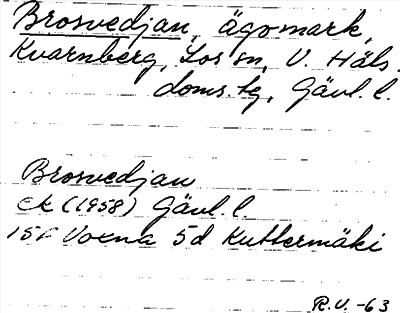 Brosvedjan, ägomark,
Kvarnberg, Los sn, V. Häls.
doms.tg, Gävl. l.
Brosvedjan
ek (1958) Gävl. l.
15F Voxna 5d Kuttermäki
R.V. -63